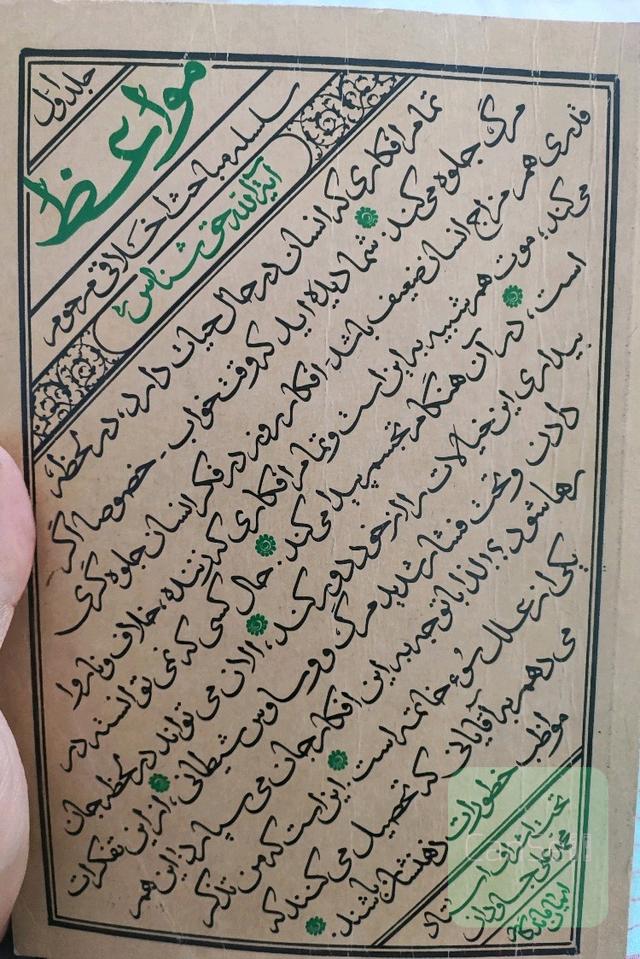 جلد اول
مواعظ
سلسله مباحث اخلاقی مرحوم
آیت الله حق شناس
تمام افکاری که انسان در حال حیات دارد، در لحظۀ
مرگ جلوه می‌کند. شما دیده اید که وقت خواب - خصوصا اگر
قدری هم مزاج انسان ضعیف باشد - افکار روز در فکر انسان جلوه گری
می‌کند؛ موت هم شبیه به این است و تمام افکاری که زننده، خلاف و ناروا
است، در آن هنگام تجسم پیدا می‌کند. حال کسی که نمی توانسته در
بیداری این خیالات را از خود دور کند، الان می تواند در لحظه جان
دادن و تحت فشار شدید مرگ و وساوس شیطانی، از این تفکرات
رها شود؟! لذا با توجه به این افکار جان می سپارد؛ این هم
یکی از علل سوء خاتمه است. این است که من تذکر
می دهم به آقایانی که تحصیل می کنند که
مواظب خطورات ذهنشان باشند.
تحت اشراف استاد
محمد علی جاودان